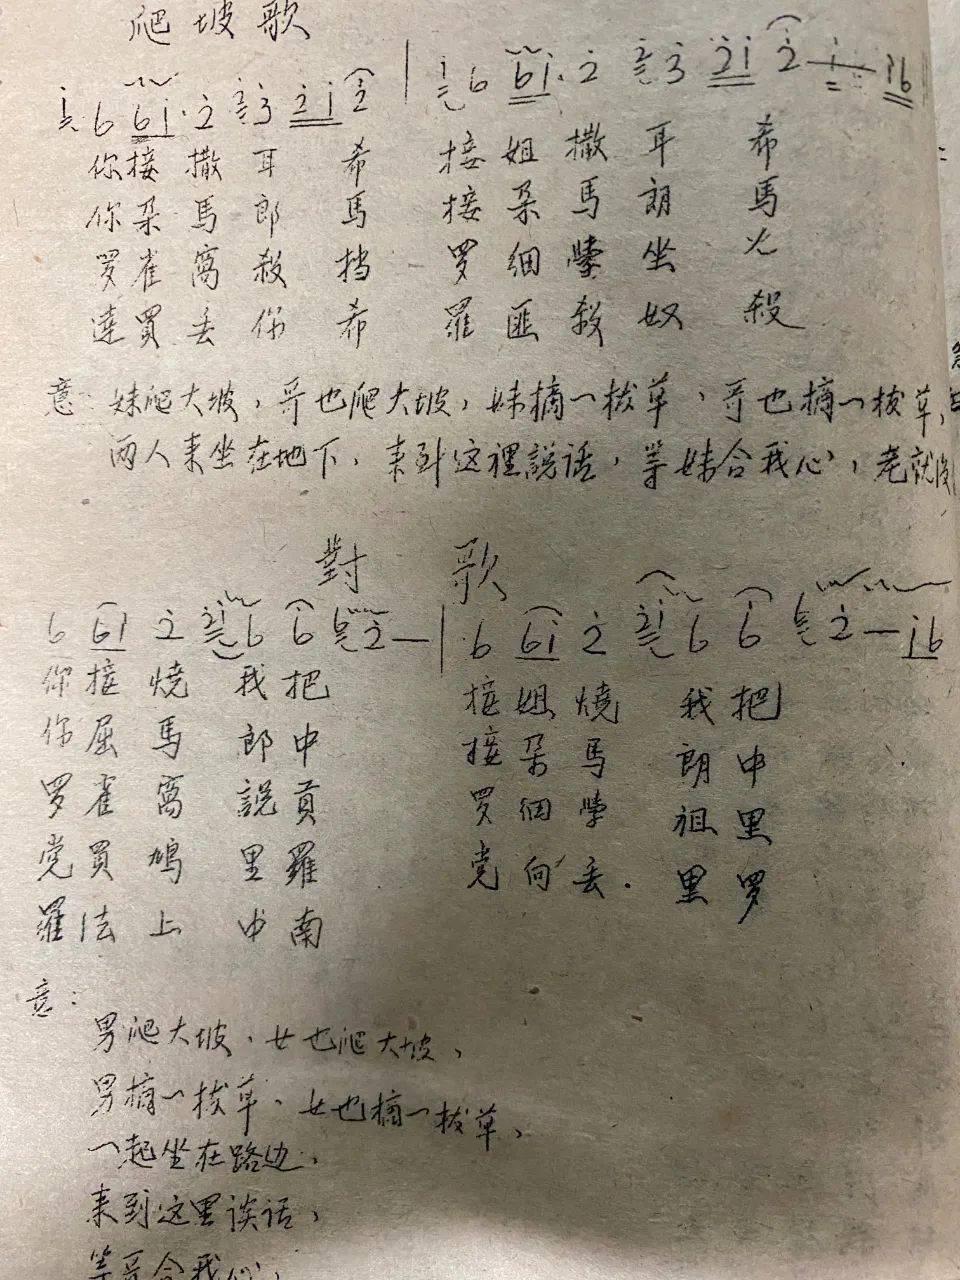 爬坡歌
你接撒耳希 接姐撒耳希
你朵馬郎馬 接朵馬朗馬
罗雀窩殺挡 罗细孿坐
達買丢你希 羅匪殺奴殺
意：妹爬大坡，哥也爬大坡，妹摘一拔草，哥也摘一拔草，
两人来坐在地下，来到这裡説话，等妹合我心，老就没
對歌
6 61 2 6 6 2 — | 6 6i 2 6 6 2 — i6
你接燒我把 接姐燒我把
你屈馬郎中 接朵馬朗中
罗雀窩説貢 罗细孿祖里
党買鳩里羅 党向丢里罗
羅法上中南
意：
男爬大坡、女也爬大坡，
男摘一拔草、女也摘一拔草，
一起坐在路边，
来到这里谈话，
等哥合我心，